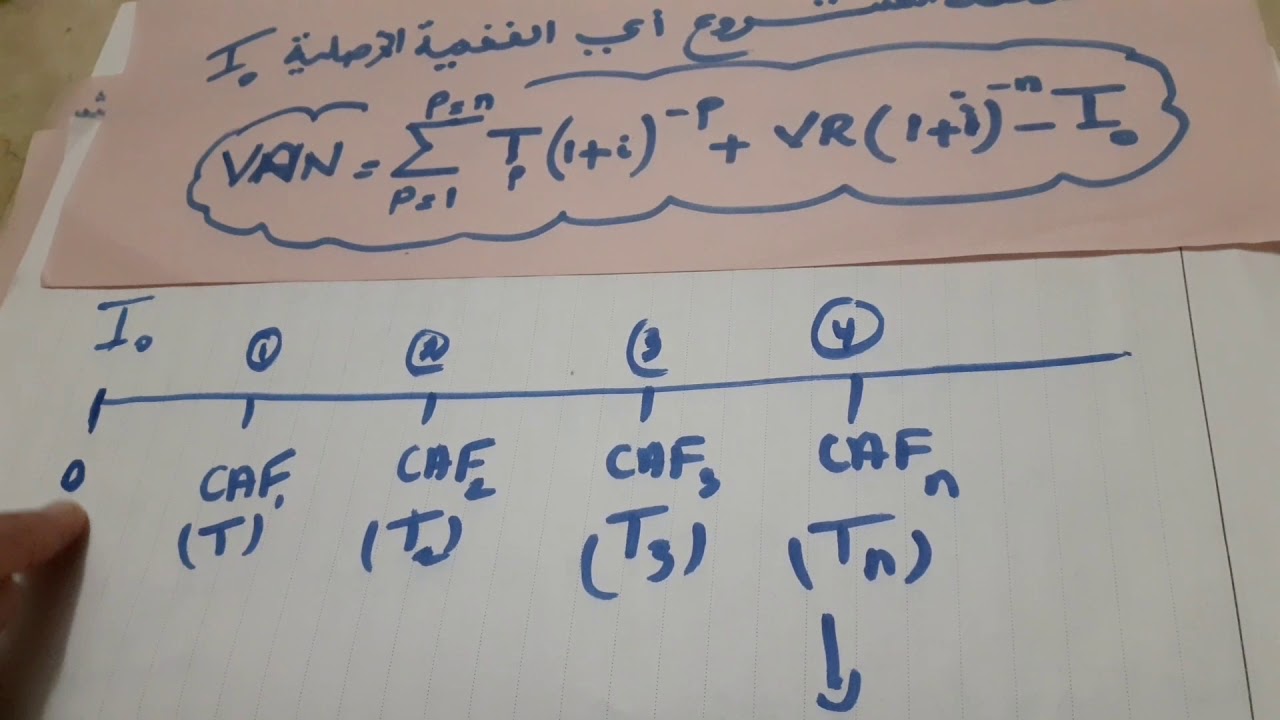 أي القيمة الأصلية I₀
VAN = \sum_{P=1}^{P=n} T_P (1+i)^{-P} + VR (1+i)^{-n} - I₀
I₀ ① ② ③ ④
0 CAF₁ CAF₂ CAF₃ CAFₙ
(T) (T₂) (T₃) (Tₙ)